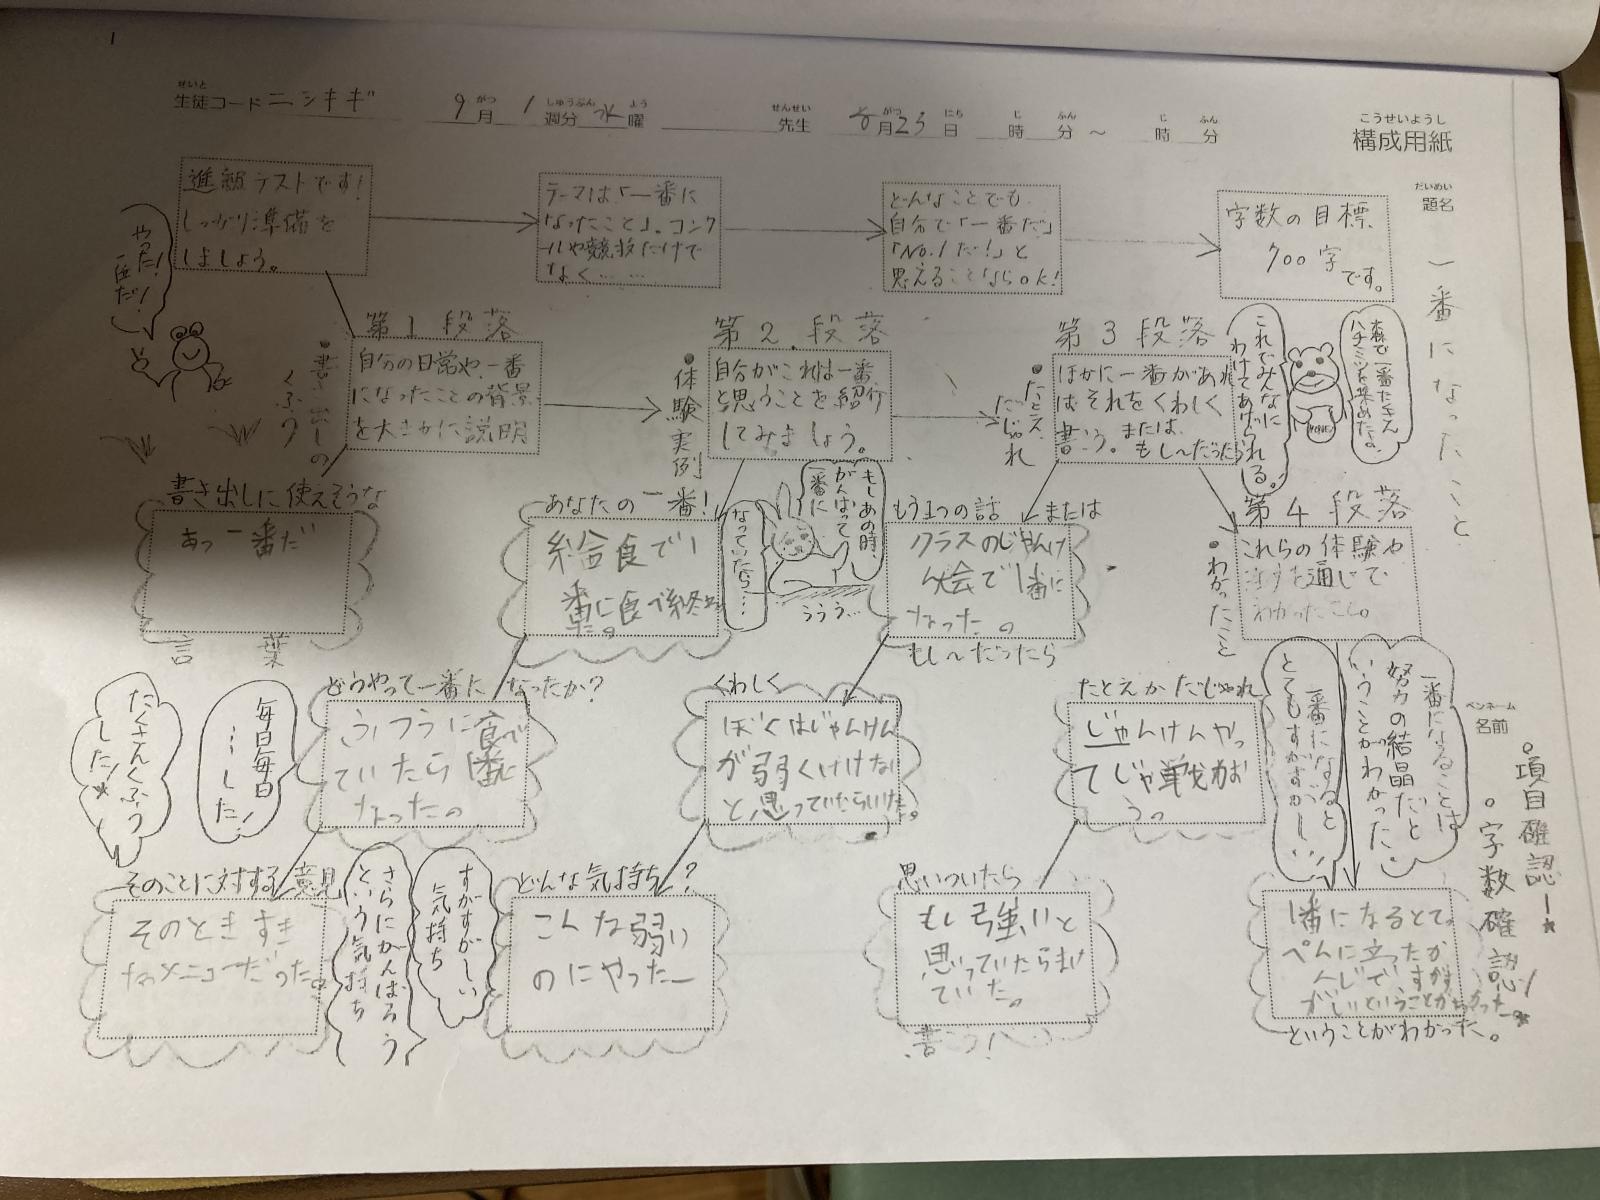 せいと
生徒コード ニシキギ
9月 1週分 水曜
がつ しゅうぶん よう
先生
せんせい
8月23日 時 分 ～ 時 分
がつ にち じ ふん じ ふん
こうせいようし
構成用紙
だいめい
題名
一番になったこと
ペンネーム
名前
進級テストです!
しっかり準備を
しましょう。
テーマは「一番に
なったこと」。コンク
ールや競技だけで
なく……
どんなことでも、
自分で「一番だ」
「No.1だ!」と
思えることならOK!
字数の目標
700字
です。
やった!
一位だ!
第1段落
自分の日常や、一番
になったことの背景
を大まかに説明
・書き出しの
くふう
第2段落
自分がこれは一番
と思うことを紹介
してみましょう。
・体験実例
第3段落
ほかに一番があれ
ばそれをくわしく
書こう。または、
もし〜だったら
・たとえ
だじゃれ
これでみんなに
わけてあげられる。
森で一番たくさん
ハチミツを集めたよ。
書き出しに使えそうな
あっ一番だ
言葉
あなたの一番!
給食で1
番に食べ終わっ
た。
もしあの時、
がんばって
一番に
なっていたら……
ううう…
もう1つの話 または
クラスのじゃんけ
ん大会で1番に
なった。
もし〜だったら
第4段落
これらの体験や
を通じて
わかったこと。
・わかったこと
どうやって一番になったか?
ふつうに食べ
ていたら1番に
なった。
毎日毎日
…した!
たくさんくふう
した!
くわしく
ぼくはじゃんけん
が弱く
と思っていたら
たとえかだじゃれ
じゃんけんやっ
てじゃ
一番になると
とてもすがすがしい
一番になることは
努力の結晶だと
いうことがわかった
・項目確認!
・字数確認!
そのことに対する意見
そのときすき
なメニューだった。
さらにがんばろう
という気持ち
すがすがしい
気持ち
どんな気持ち?
こんな弱い
のにやったー
思いついたら
もし強いと
思っていたらまけ
ていた。
書こう!
1番になるとてっ
ぺんに立ったか
んじですがす
がしいということがわかった。
ということがわかった。